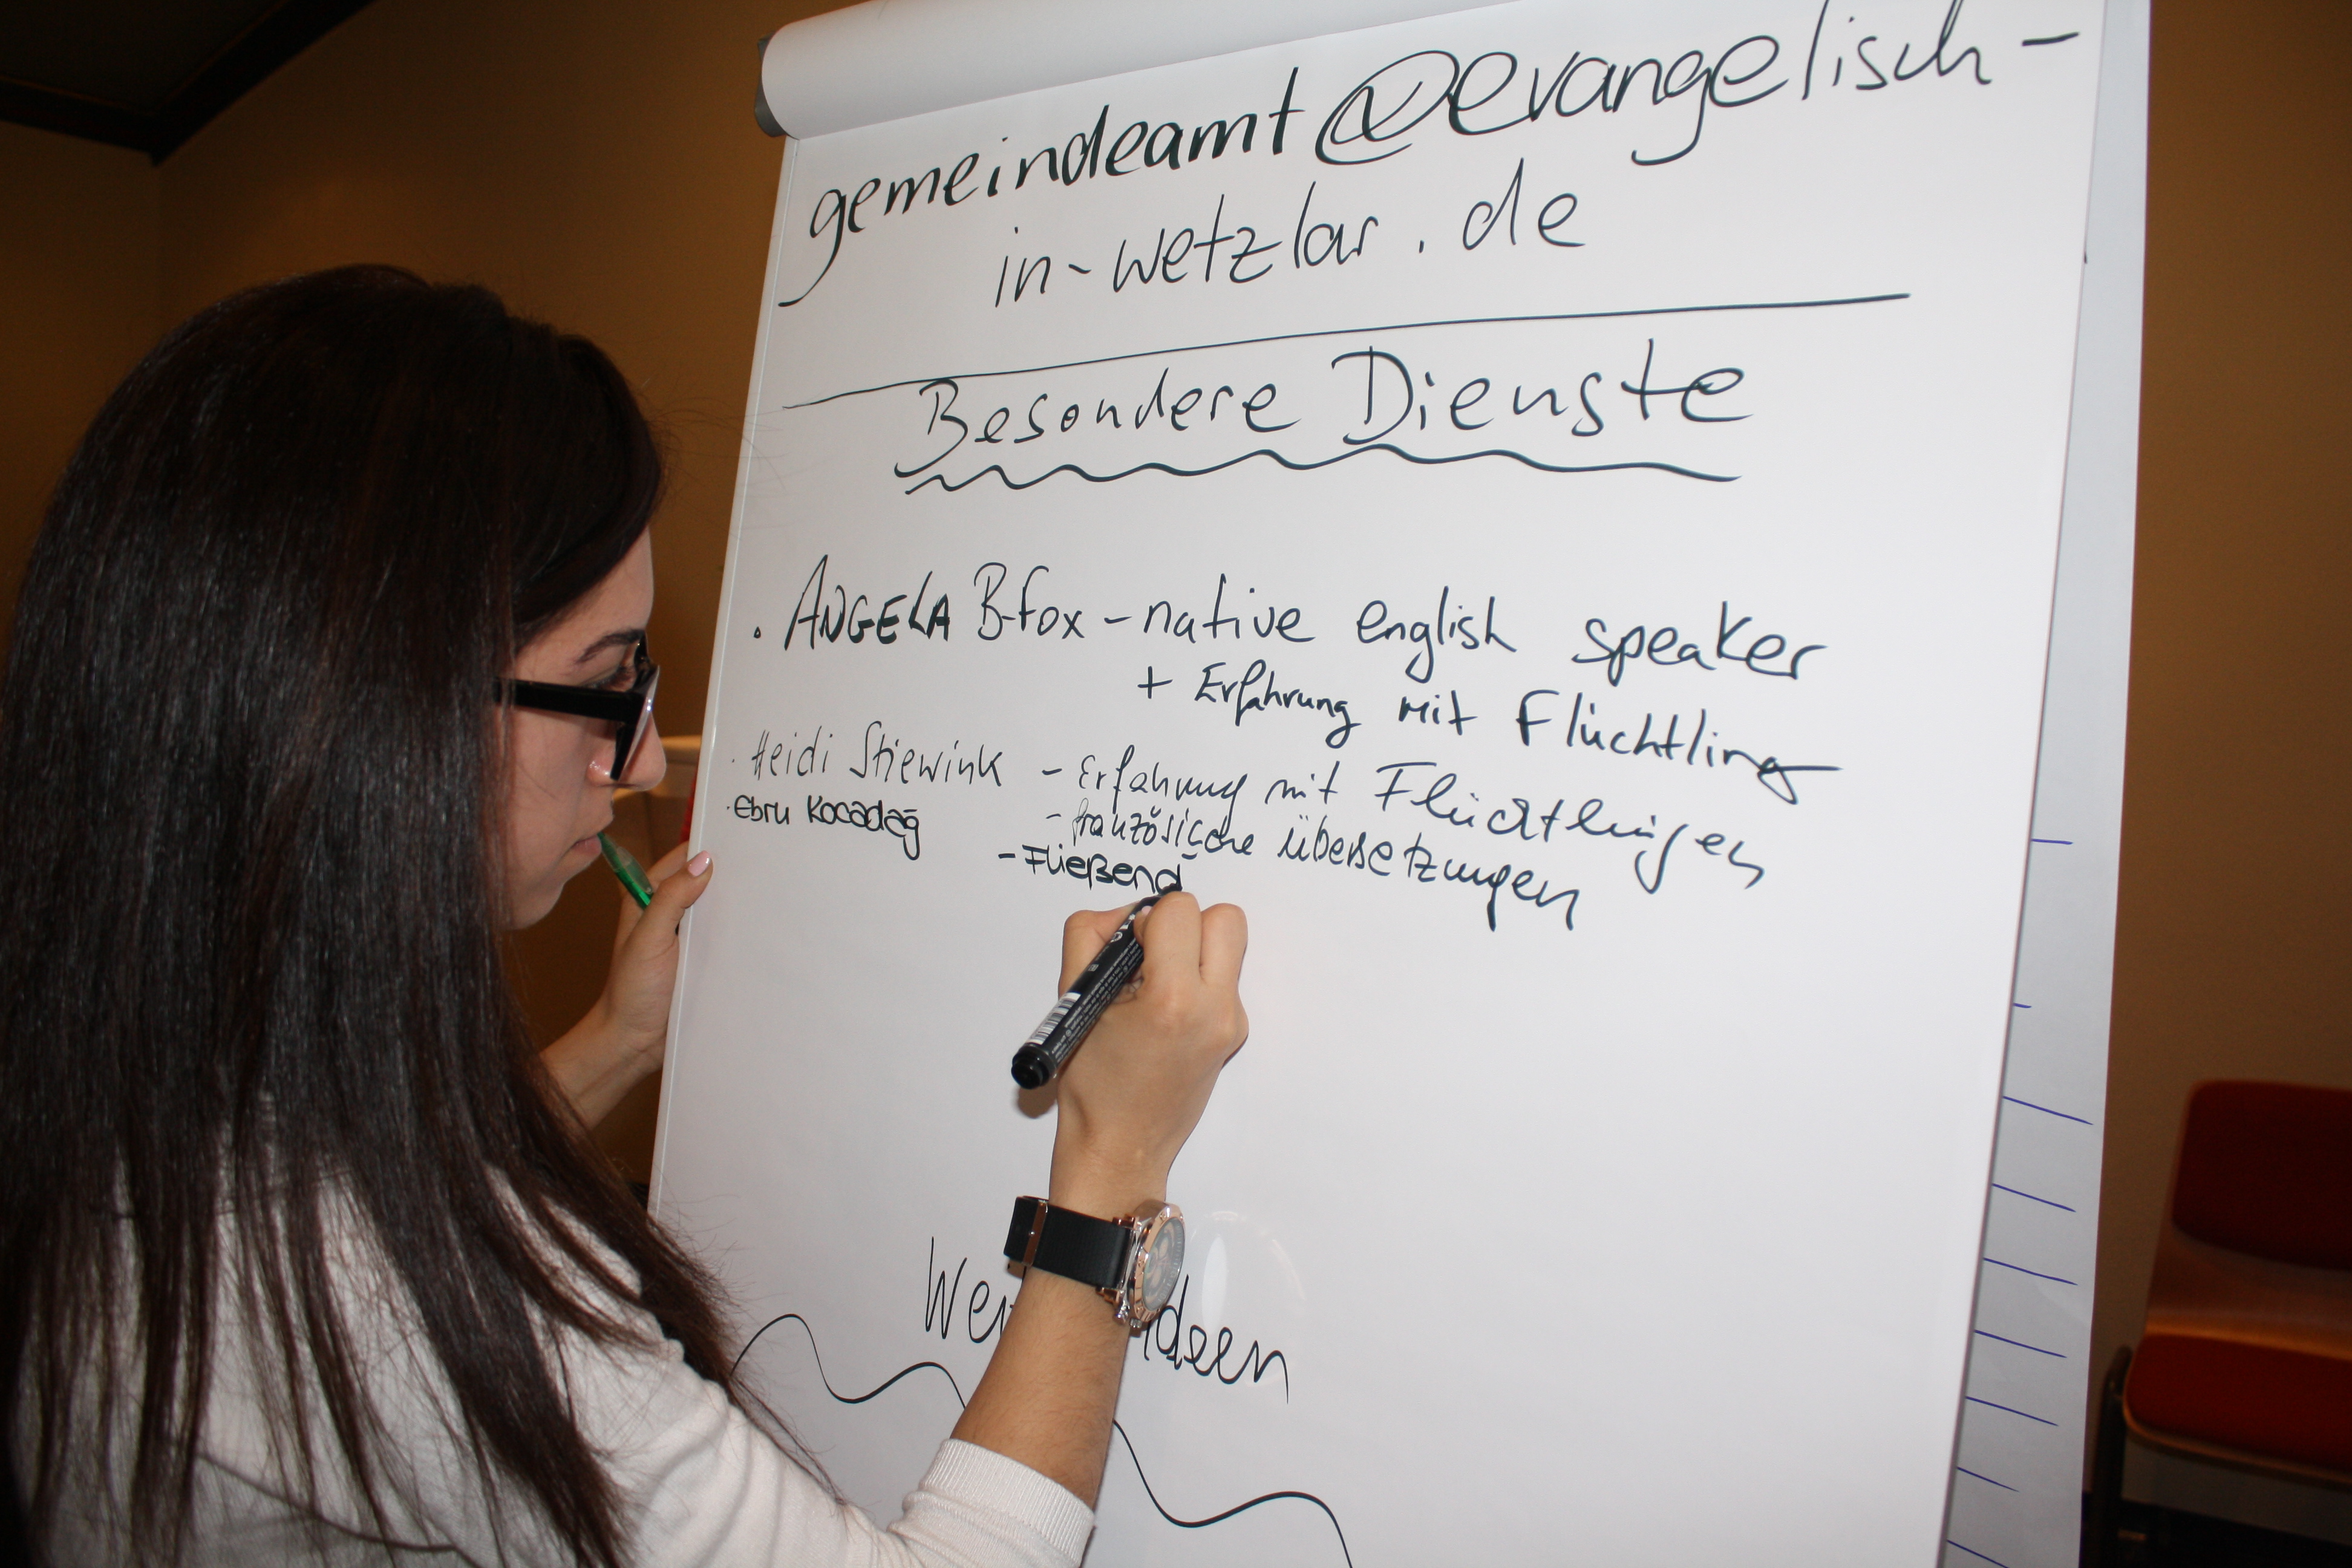 gemeindeamt@evangelisch-
in-wetzlar.de
Besondere Dienste
. ANGELA B-Fox - native english speaker
+ Erfahrung mit Flüchtling
. Heidi Stiewink - Erfahrung mit Flüchtlingen
- französische Übersetzungen
. Ebru Kocadağ - Fließend
Ideen